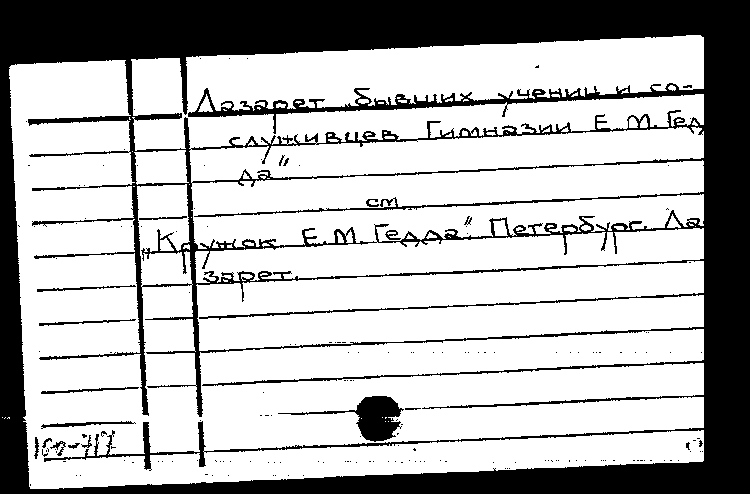 Лазарет „бывших учениц и со-
служивцев Гимназии Е. М. Гед
да"
см.
„Кружок Е. М. Гедда". Петербург. Ла
зарет.